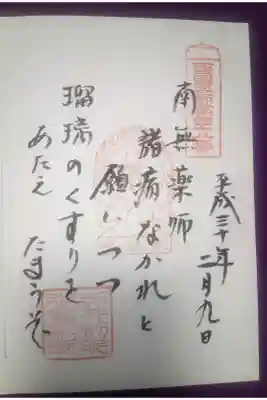 平成三十年二月九日
南無薬師
諸病なかれと
願いつつ
瑠璃のくすりを
あたえ
たまうぞ